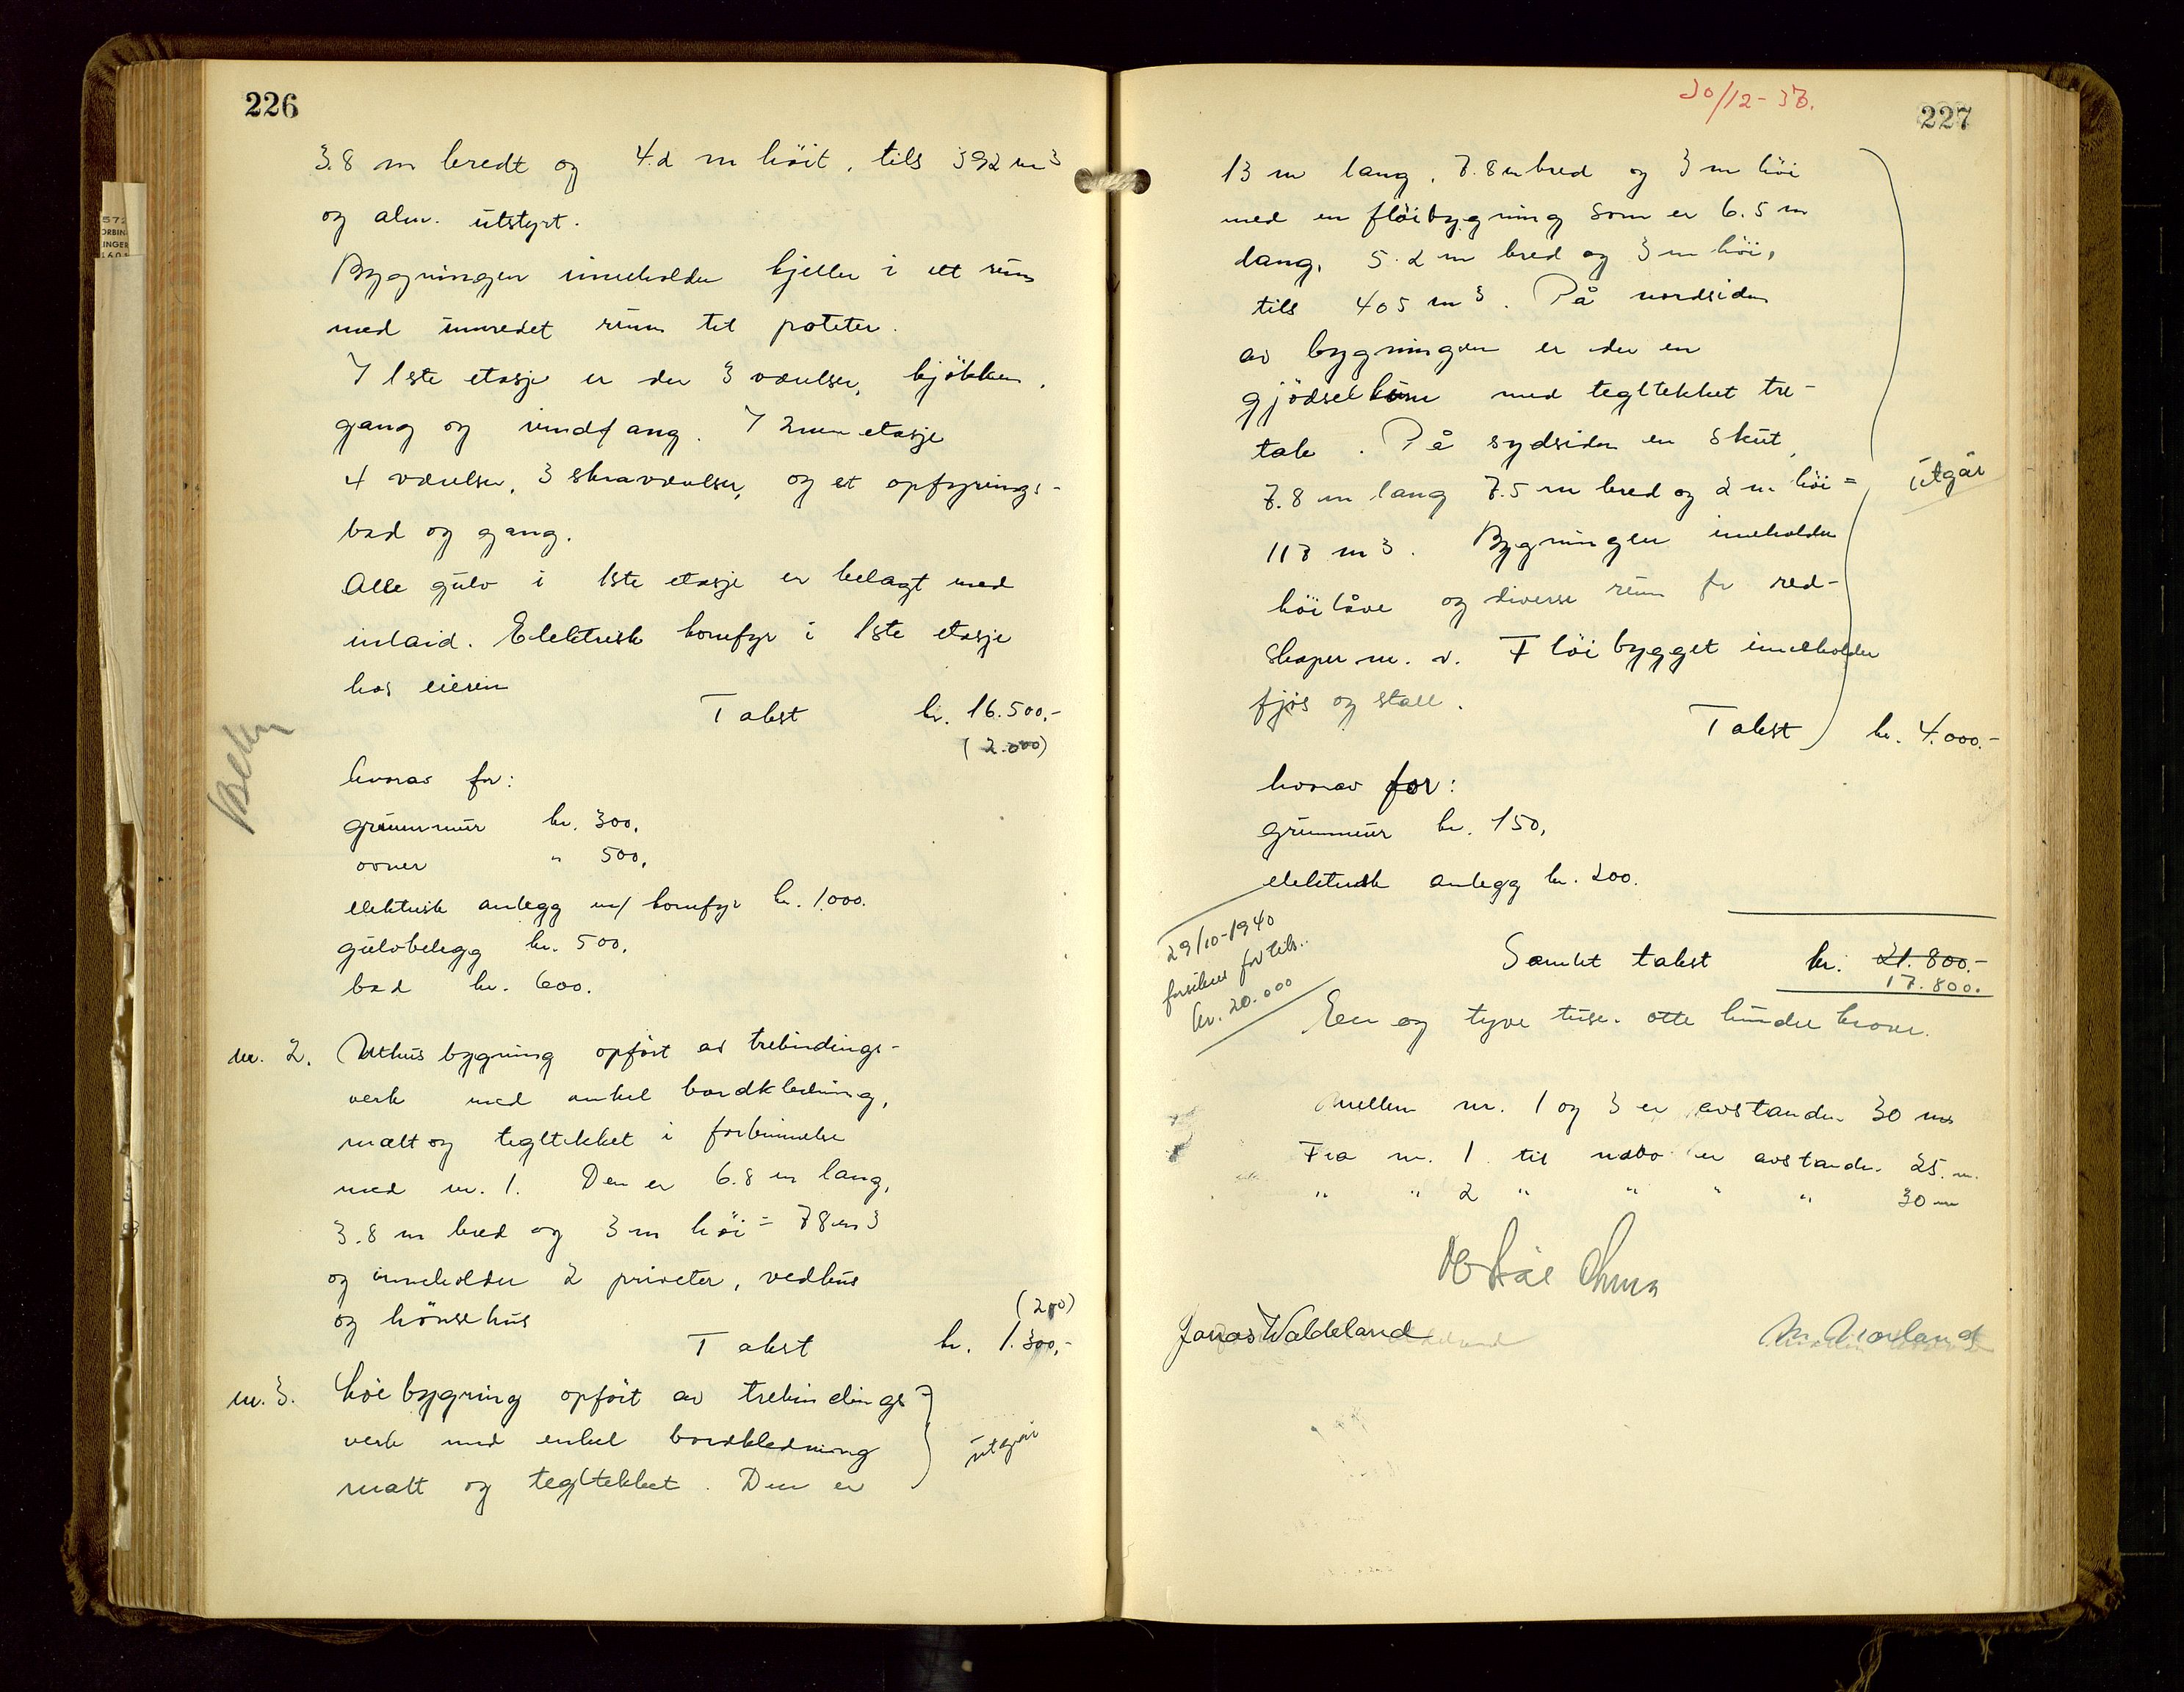 226
3.8 m bredt og 4.2 m höit, tils 392 m3
og alm. utstyrt.
Bygningen inneholder kjeller i ett rum
med innredet rum til poteter.
I 1ste etasje er der 3 værelser, kjökken,
gang og vindfang. I 2nen etasje
4 værelser, 3 skraværelser, og et opfyrings-
bad og gang.
Alle gulv i 1ste etasje er belagt med
inlaid. Elektrisk komfyr i 1ste etasje
hos eieren
Takst kr. 16.500,-
(2.000)
hvorav for:
grunnmur kr. 300,
ovner " 500,
elektrisk anlegg m/ komfyr kr. 1.000.
gulvbelegg kr. 500,
bad kr. 600.
nr. 2. Uthusbygning opfört av trebindings-
verk med enkel bordkledning,
malt og tegltekket i forbinnelse
med nr. 1. Den er 6.8 m lang,
3.8 m bred og 3 m höi = 78 m3
og inneholder 2 priveter, vedhus
og hönsehus
(200)
Takst kr. 1.300,-
nr. 3. Löebygning opfört av trebindings-
verk med enkel bordkledning
malt og tegltekket. Den er
utgår
30/12-37.
227
13 m lang, 7.8 m bred og 3 m höi
med en flöibygning som er 6.5 m
lang, 5.2 m bred og 3 m höi,
tils 405 m3. På nordsiden
av bygningen er der en
gjödselkum med tegltekket tre-
tak. På sydsiden en skut,
7.8 m lang 7.5 m bred og 2 m höi =
utgår
117 m3. Bygningen inneholder
höilåve og diverse rum for red-
skaper m. v. Flöibygget inneholder
fjös og stall.
Takst kr. 4.000.-
hvorav for:
grunnmur kr. 150,
elektrisk anlegg kr. 200.
29/10-1940
forsikres for tils.
kr. 20.000
Samlet takst kr. 21.800.-
17.800.
Een og tyve tuse. otte hundre kroner.
Mellem nr. 1 og 3 er avstanden 30 m
Fra nr. 1 til nabo er avstanden 25 m.
" " 2 " " " " 30 m
Jonas Waldeland
M. Norland